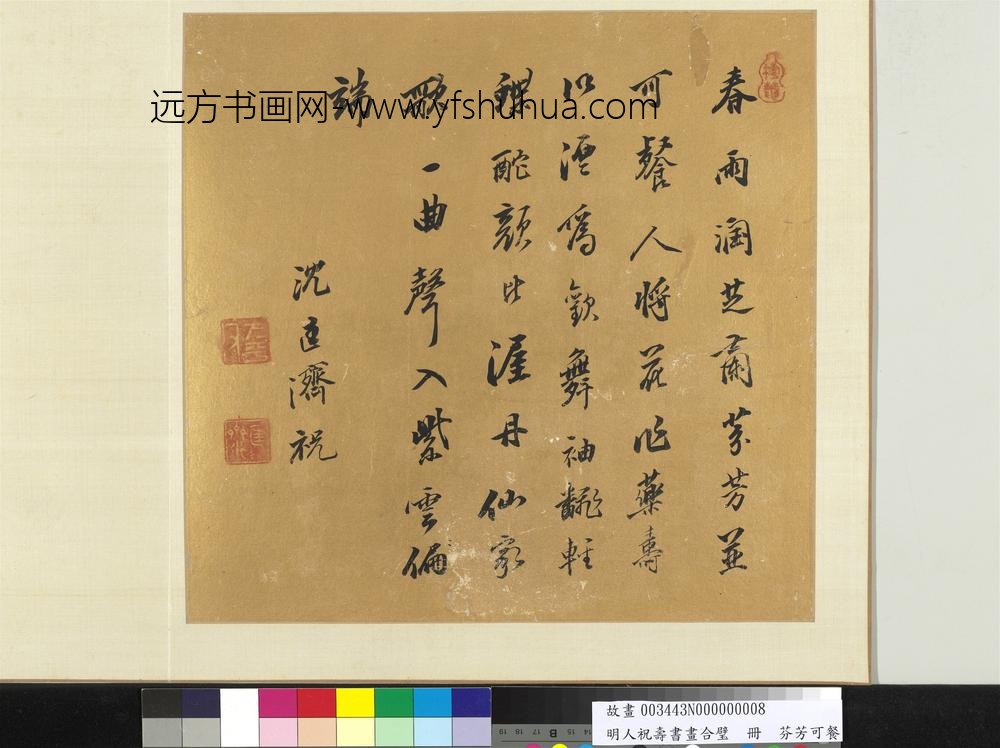 春雨潤芝蘭芬芳並
可餐人將花作藥壽
以酒爲歡舞袖輕
酡顏比渥丹仙家
歌一曲聲入紫雲偏
端
沈匡濟祝
远方书画网-www.yfshuhua.com
故畫 003443N000000008
明人祝壽書畫合璧 冊 芬芳可餐